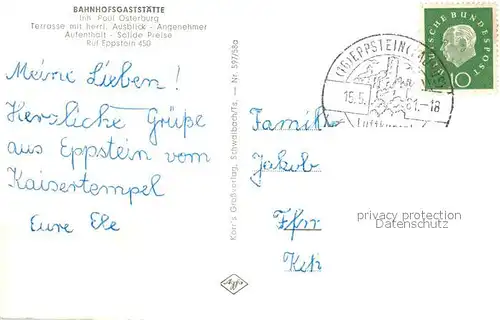 BAHNHOFSGASTSTÄTTE
Inh. Paul Osterburg
Terrasse mit herrl. Ausblick - Angenehmer
Aufenthalt - Solide Preise
Ruf Eppstein 450
Meine Lieben!
Herzliche Grüße
aus Eppstein vom
Kaisertempel
Eure Ele
Karr's Großverlag, Schwalbach/Ts. — Nr. 597/58a
Agfa
(16) EPPSTEIN
15.5. 61.-18
Luftkurort
DEUTSCHE BUNDESPOST
10
Familie
Jakob
Ffm
privacy protection
Datenschutz